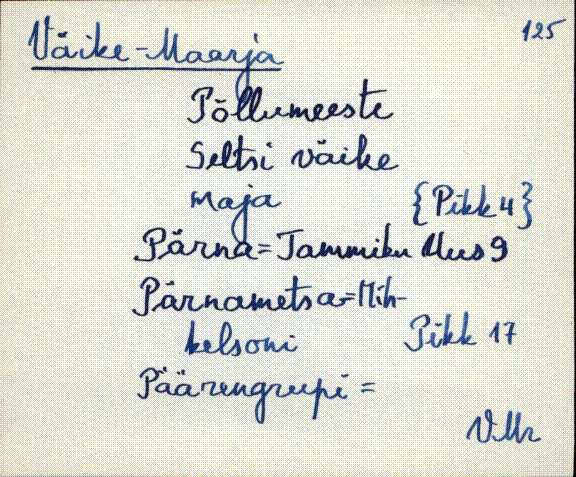 Väike-Maarja
125
Põllumeeste
Seltsi väike
maja {Pikk 4}
Pärna=Tammiku Uus 9
Pärnametsa=Mih-
kelsoni Pikk 17
Päärengrupi =
VMr